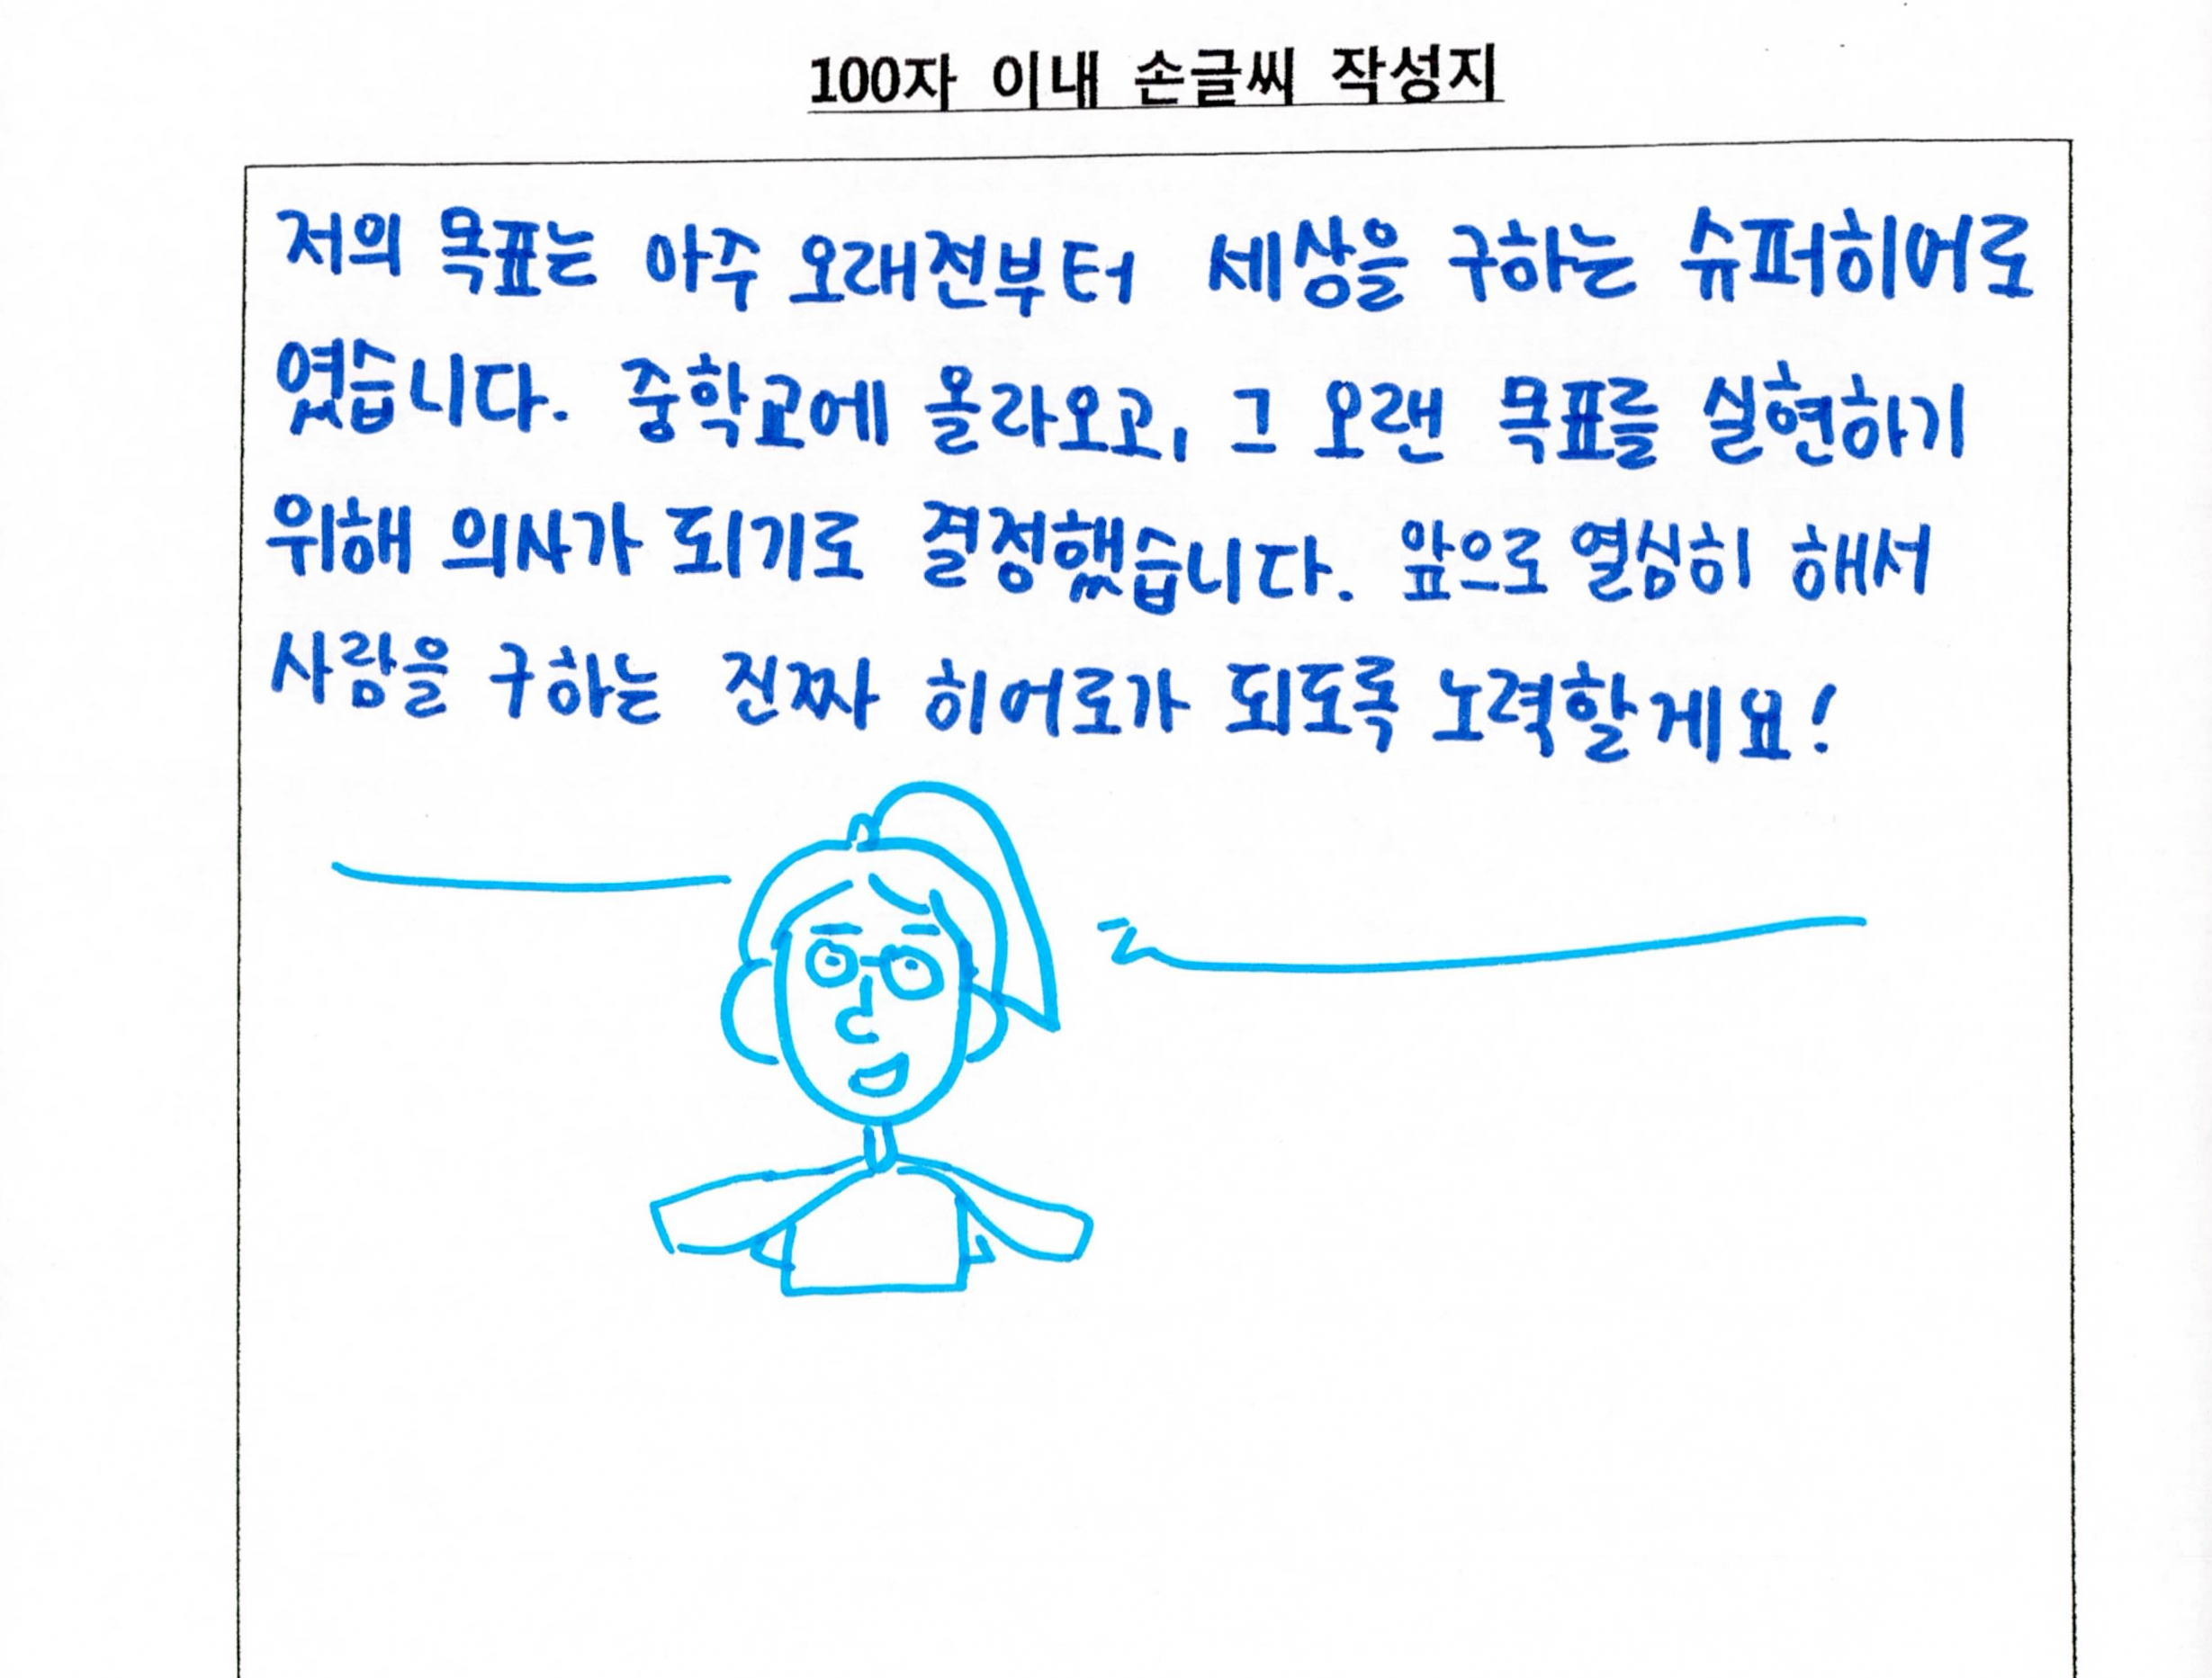 100자 이내 손글씨 작성지
저의 목표는 아주 오래전부터 세상을 구하는 슈퍼히어로
였습니다. 중학교에 올라오고, 그 오랜 목표를 실현하기
위해 의사가 되기로 결정했습니다. 앞으로 열심히 해서
사람을 구하는 진짜 히어로가 되도록 노력할게요!